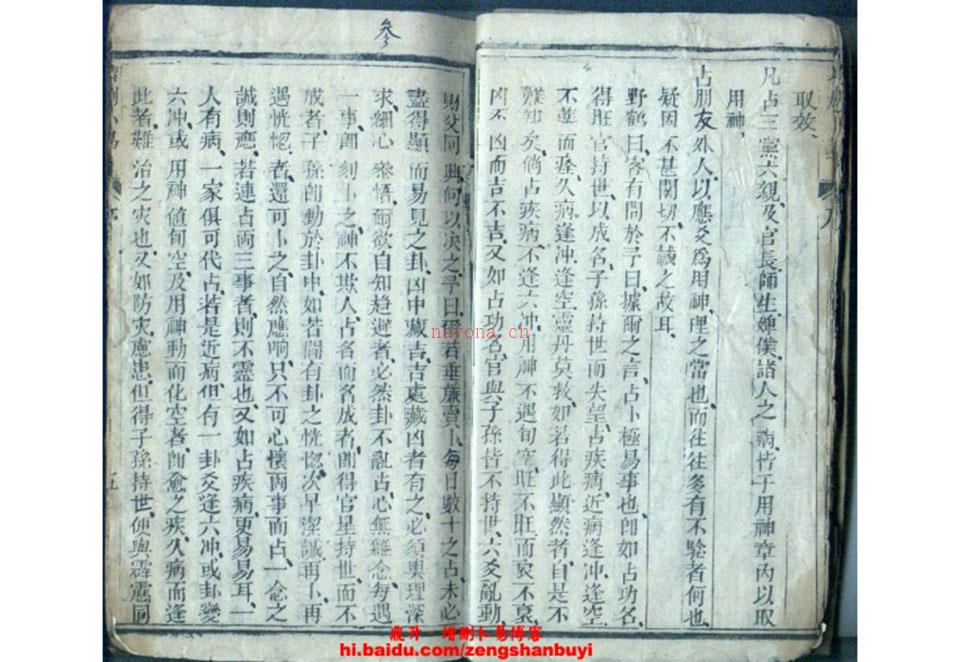 參
取效、
凡占三黨六親、及官長師生、婢僕、諸人之病、皆于用神章內以取
用神、
占朋友外人、以應爻爲用神、理之當也、而往往多有不驗者何也、
疑因不甚關切、不誠之故耳、
野鶴曰、客有問於予曰、據爾之言、占卜極易事也、卽如占功名、
得旺官持世、以成名、子孫持世而失望、占疾病、近病逢冲逢空、
不藥而痊、久病逢冲逢空、靈丹莫救、如若得此顯然者、自是不
難知、倘占疾病、不逢六冲、用神不遇旬空、旺不旺、而衰不衰、
凶不凶而吉不吉、又如占功名、官與子孫皆不持世、六爻亂動、
財父同興、何以決之、予曰、爾若垂簾賣卜、每日數十之占、未必
盡得顯而易見之卦、凶中藏吉、吉處藏凶者有之、必須奧理深
求、細心叅悟、爾欲自知趋避者、必然卦不亂占、心無雜念、每遇
一事、卽刻卜之、神不欺人、占名而名成者、卽得官星持世、而不
成者、子孫卽動於卦中、如若間有卦之恍惚、次早潔誠、再卜再
遇恍惚者、還可卜之、自然應响、只不可心懷兩事而占、一念之
誠則應、若連占兩三事者、則不靈也、又如占疾病、更易易耳、一
人有病、一家俱可代占、若是近病、但有一卦爻逢六冲、或卦變
六冲、或用神值旬空、及用神動而化空者、卽愈之疾、久病而逢
此者、難治之灾也、又如防灾慮患、但得子孫持世、便與霹靂同
五
nayona.cn
鼎升·增刪卜易博客
hi.baidu.com/zengshanbuyi